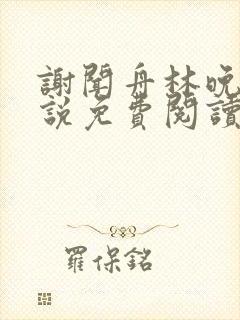 謝聞舟林晚
說免費閱讀
羅保銘